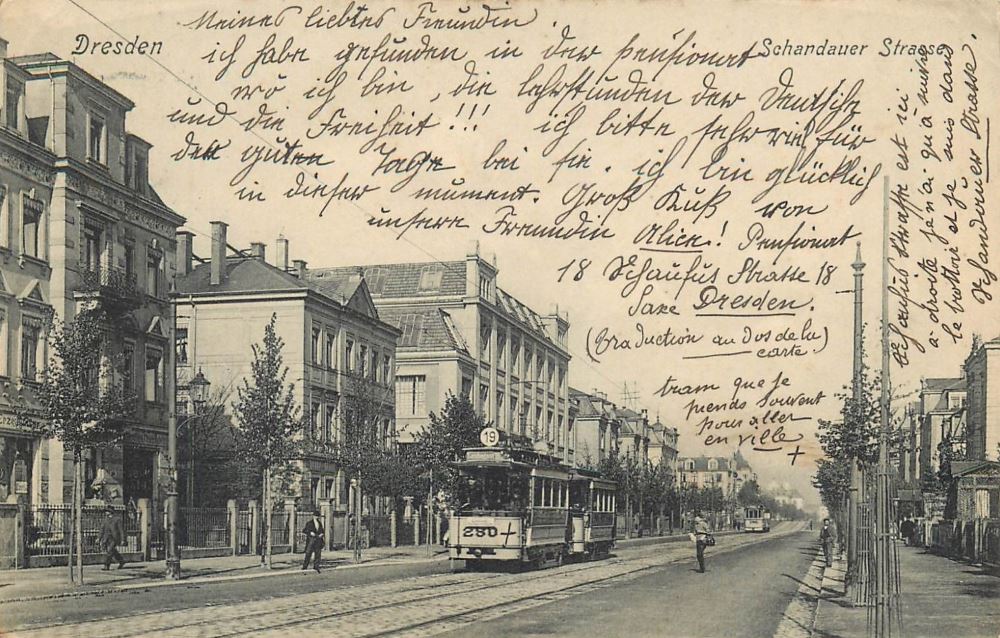 Dresden
Schandauer Strasse
Meines liebtes Freundin.
ich habe gefunden in der pensionat
wo ich bin, die lehrstunden der Deutsche
und die Freiheit!!! ich bitte sehr viel für
der guten Tage bei sie. ich bin glücklich
in dieser mument. Groß Kuß von
unsere Freundin Alice! Pensionat
18 Schaufus Strasse 18
Saxe Dresden.
(traduction au dos de la
carte.)
tram que je
prends souvent
pour aller
en ville
+
Schaufus Strasse est ici
à droite je n'ai qu'à suivre
le trottoir et je suis dans
Schandauer Strasse.
19
250+